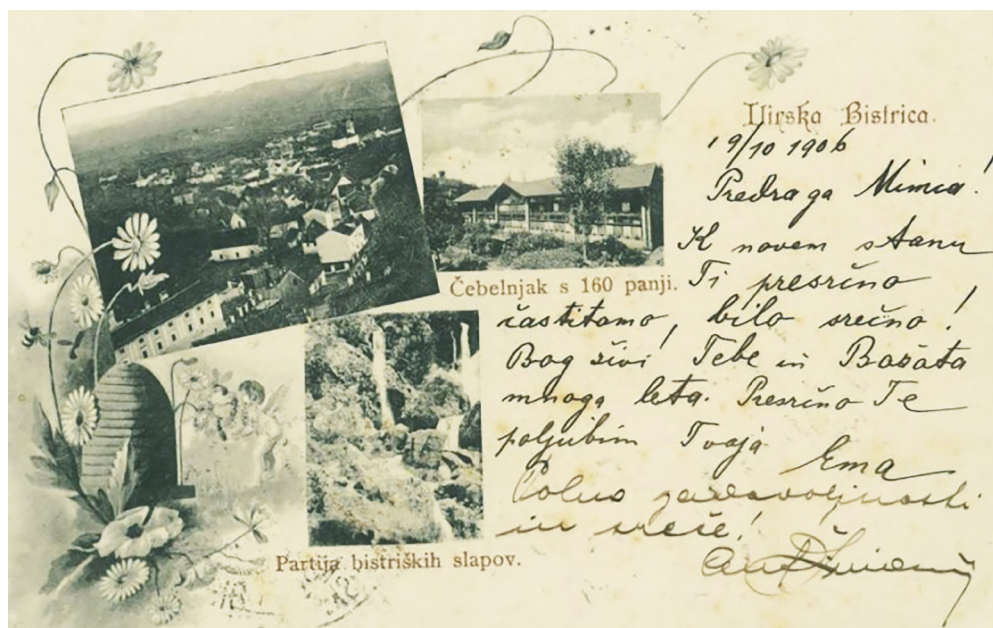 Ilirska Bistrica.
19/10 1906
Predraga Mimica!
K novem stanu
Ti presrčno
častitamo, bilo srečno!
Bog živi Tebe in Božata
mnoga leta. Presrčno Te
poljubim Tvoja
Ema
Polno zadovoljnosti
in sreče!
Čebelnjak s 160 panji.
Partija bistriških slapov.